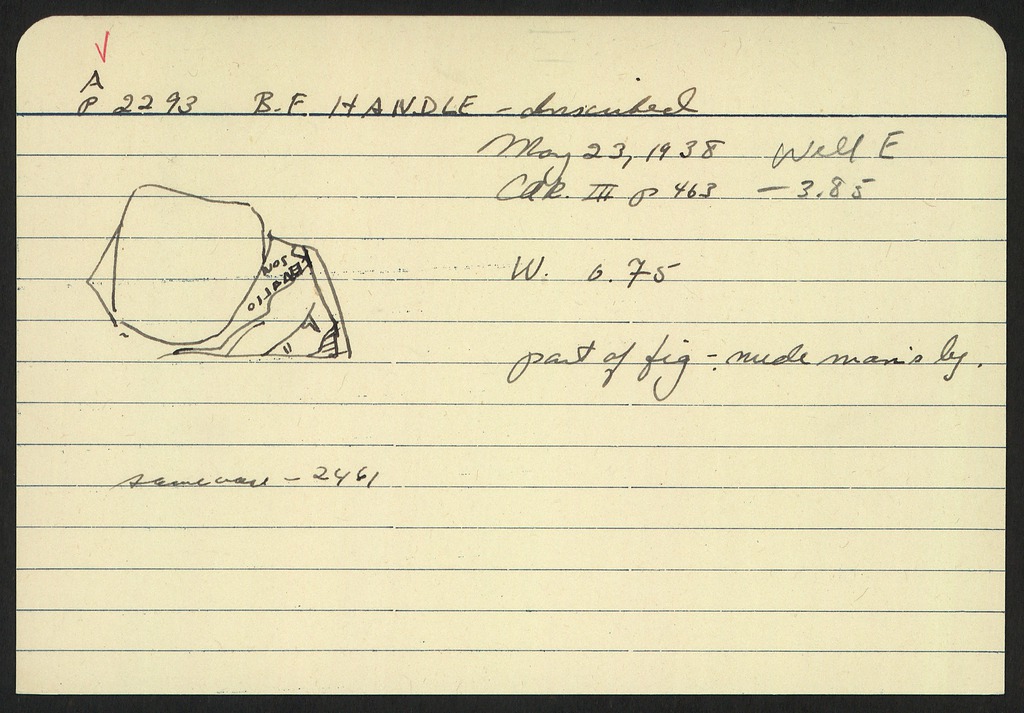 A
P 2293 B.F. HANDLE - Inscribed
May 23, 1938 Well E
III p 463 - 3.85
W. 0.75
part of fig - nude man's leg.
same vase - 2461